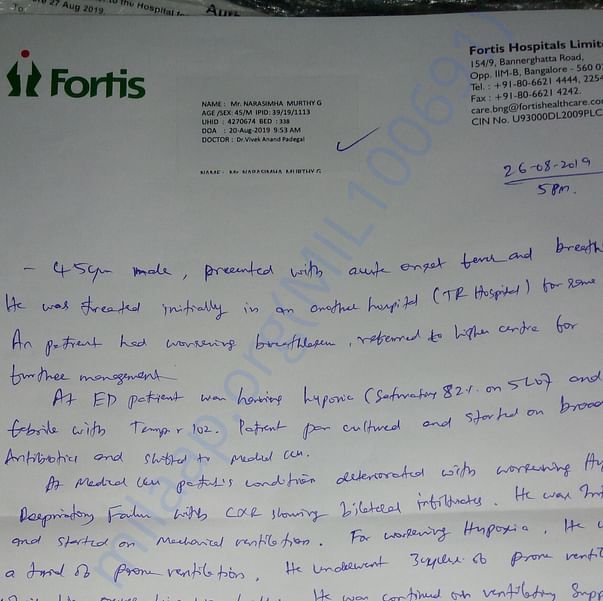 27 Aug 2019. to the Hospital for
To
Fortis
Fortis Hospitals Limit
154/9, Bannerghatta Road,
Opp. IIM-B, Bangalore - 560 07
Tel. : +91-80-6621 4444, 2254
Fax : +91-80-6621 4242.
care.bng@fortishealthcare.co
CIN No. U93000DL2009PLC
NAME : Mr. NARASIMHA MURTHY G
AGE/SEX: 45/M IPID: 39/19/1113
UHID : 4270674 BED : 338
DOA : 20-Aug-2019 9:53 AM
DOCTOR : Dr.Vivek Anand Padegal
NAME : Mr NARASIMHA MURTHY G
26-08-2019
5 pm.
- 45 yr male, presented with acute onset fever and breath
He was treated initially in an another hospital (TR Hospital) for same
As patient had worsening breathlessness, referred to higher centre for
further management
At ED patient was having hypoxia (Saturation 82% on 5L O2 and
febrile with Temp 102. Patient pan cultured and started on broad
Antibiotics and shifted to medical ICU.
At Medical ICU patient's condition deteriorated with worsening Hy
Respiratory Failure with CXR showing bilateral infiltrates. He was Int
and started on Mechanical ventilation. For worsening Hypoxia, He w
a trial of prone ventilation. He underwent 3 cycles of prone ventil
He was continued on ventilatory supp
milaap.org(MIL100691)